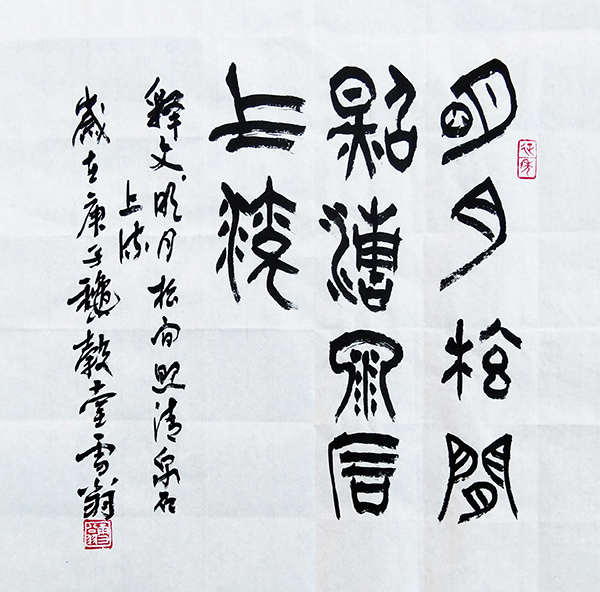 明月松間
照清泉石
上流
釋文、明月松间照清泉石
上流
歲在庚子龝穀堂雪翁
延年
雪翁